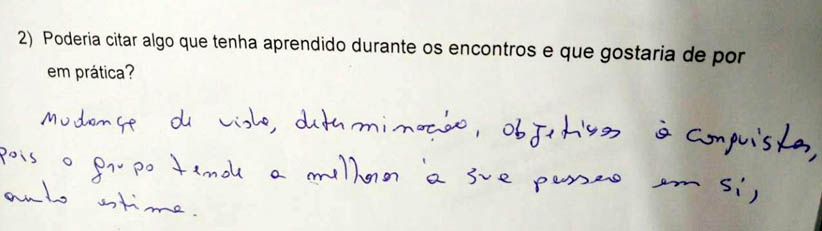 2) Poderia citar algo que tenha aprendido durante os encontros e que gostaria de por
em prática?
Mudança de vida, determinação, objetivos à conquistar,
pois o grupo tende a melhorar a sua pessoa em si,
auto estima.